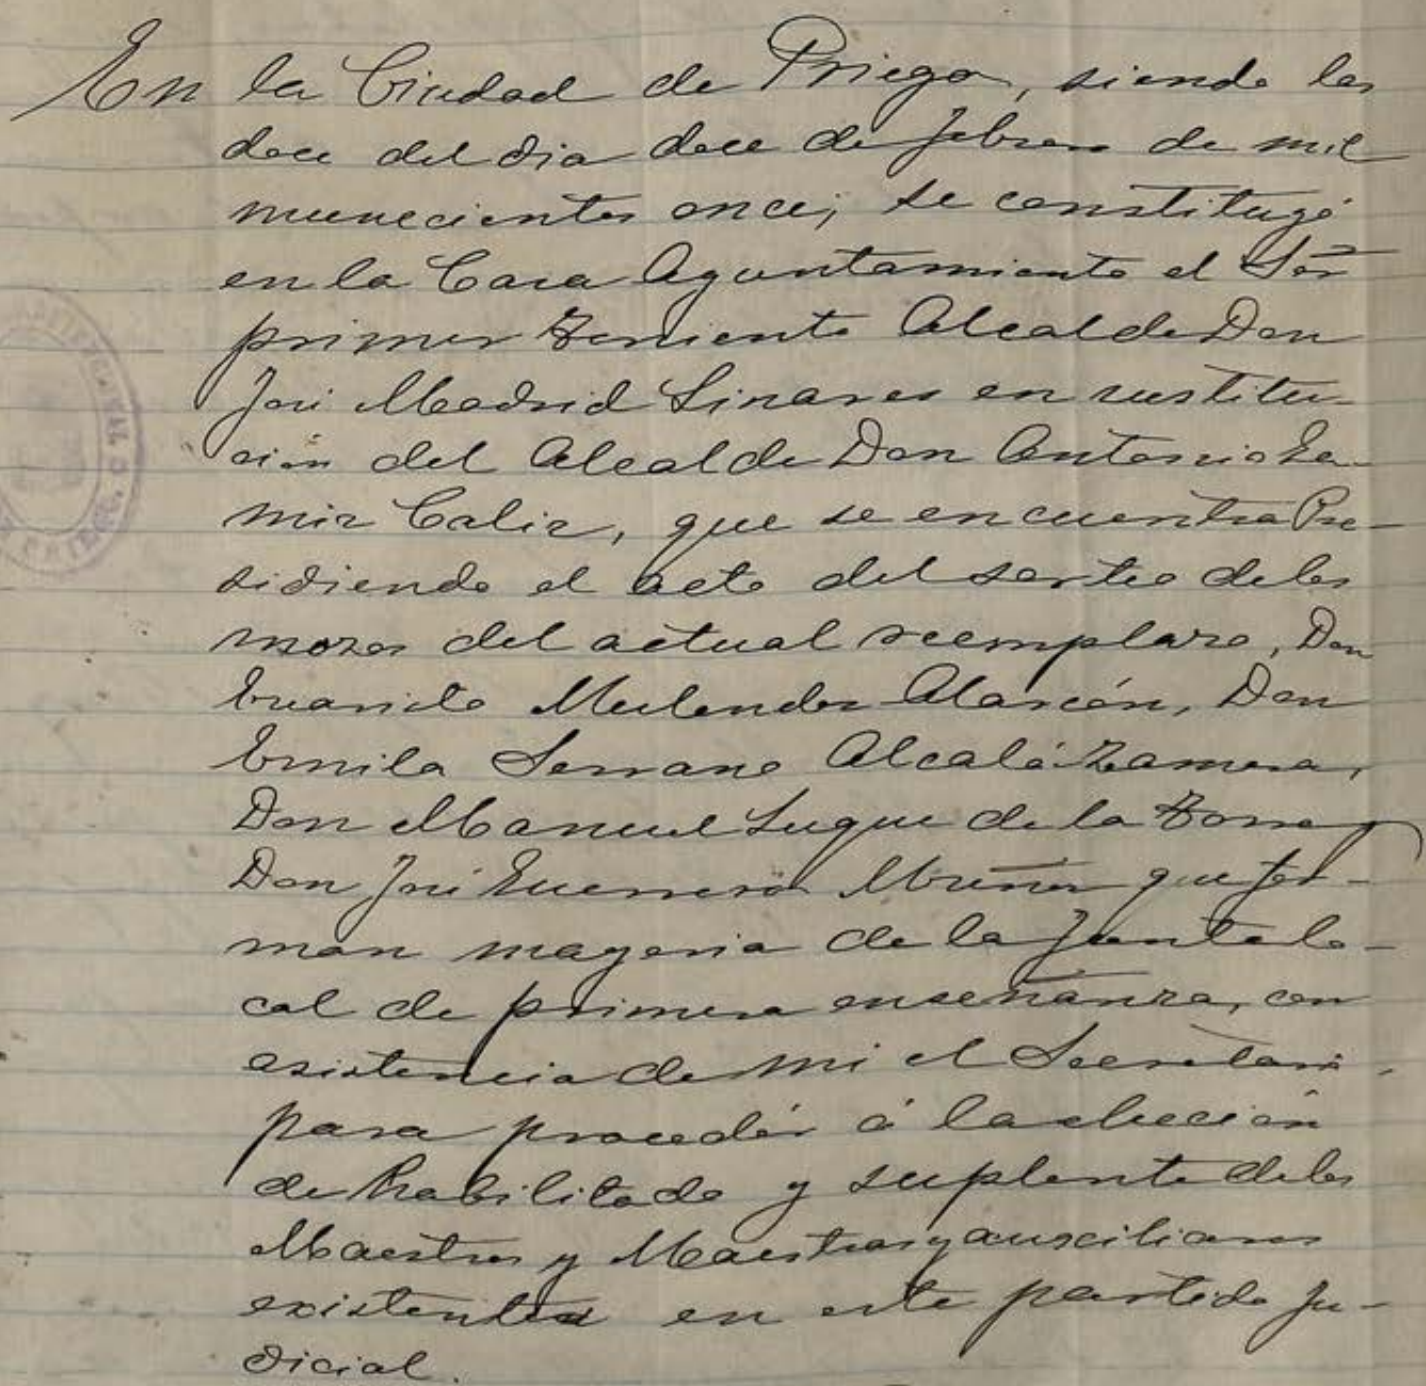 En la Ciudad de Priego, siendo las
doce del dia doce de febrero de mil
nuevecientos once; se constituyó
en la Casa Ayuntamiento el Sor
primer Teniente Alcalde Don
José Madrid Linares en sustitu-
ción del Alcalde Don Antonio Za-
mir Caliz, que se encuentra Pre-
sidiendo el acto del sorteo de los
mozos del actual reemplazo, Don
Evaristo Melendez Alarcón, Don
Emilo Serrano Alcalá Zamora,
Don Manuel Luque de la Torre y
Don José Guerrero Muñoz que for-
man mayoria de la Junta lo-
cal de primera enseñanza, con
asistencia de mi el Secretario,
para procedér á la elección
de habilitado y suplente de los
Maestros y Maestras y auxciliares
existentes en este partido ju-
dicial.